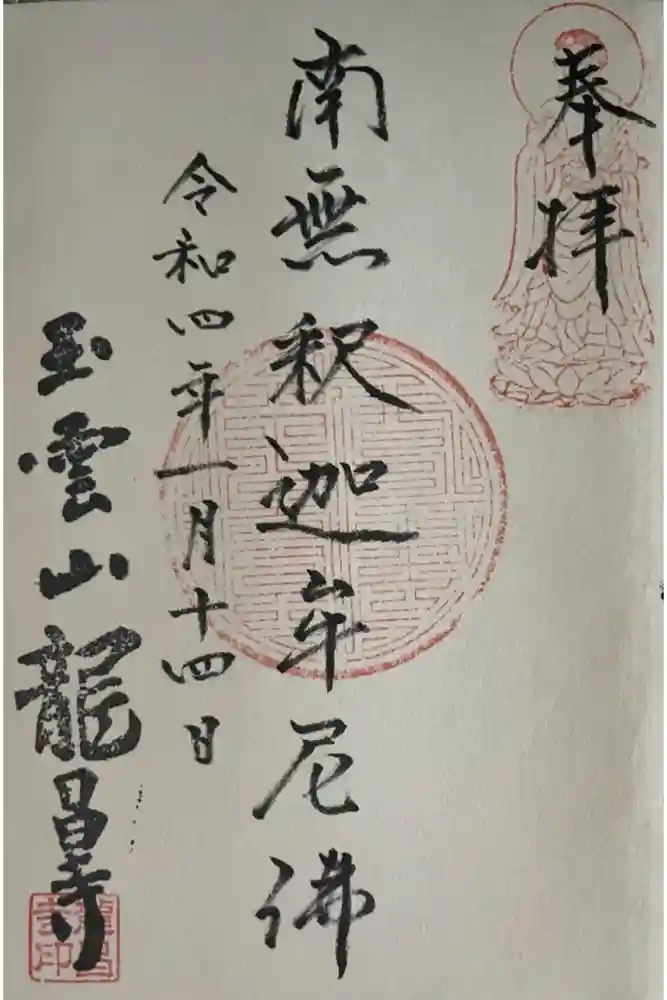 奉拝
南無釈迦牟尼佛
令和四年一月十四日
玉雲山龍昌寺
龍昌寺印